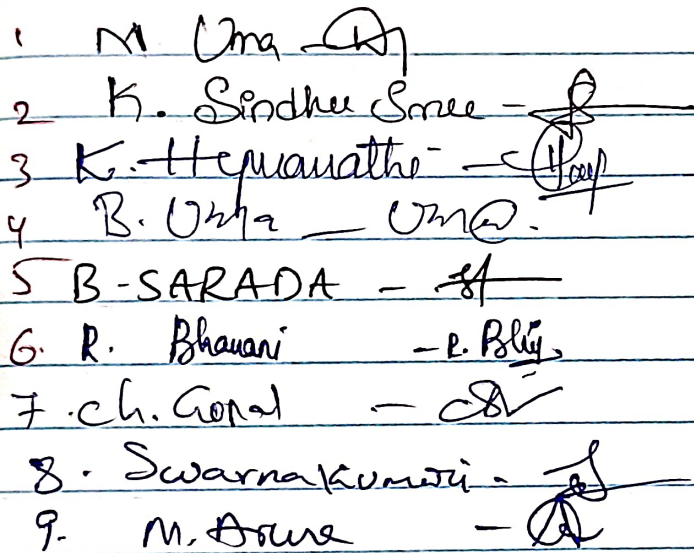 1 M Uma
2 K. Sindhu Sree -
3 K. Hymavathi -
4 B. Uma — Uma.
5 B-SARADA -
6. R. Bhavani - R.
7. ch. Gopal -
8. Swarnakumari -
9. M. Aruna -